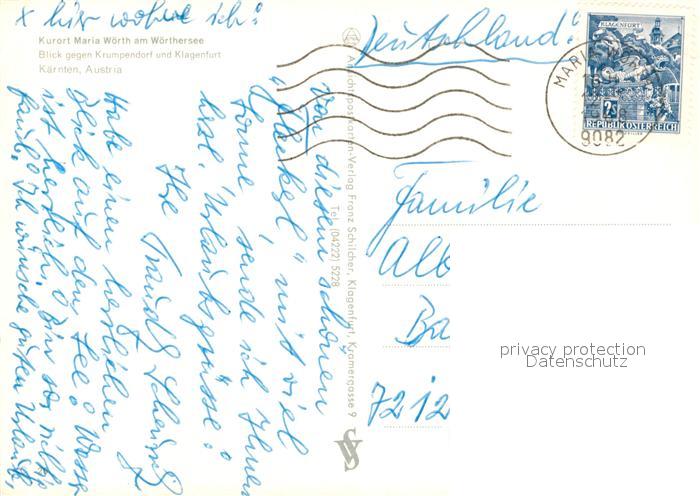 x hier wohne ich!
Kurort Maria Wörth am Wörthersee
Blick gegen Krumpendorf und Klagenfurt
Kärnten, Austria
Deutschland!
KLAGENFURT
2S
REPUBLIK ÖSTERREICH
MARIA
9082
Ansichtspostkarten-Verlag Franz Schilcher, Klagenfurt, Kramergasse 9
Tel. (04222) 5228
Von diesem schönen
"Fleckerl" mit viel
Sonne, sende ich Ihnen
herzl. Urlaubsgrüsse!
Ihre Traudl
Habe einen herrlichen
Blick auf den See! Wasser
ist herrlich! Bin so richtig
faul! Ich wünsche guten Urlaub.
Familie
Alb
Ba
7212
privacy protection
Datenschutz